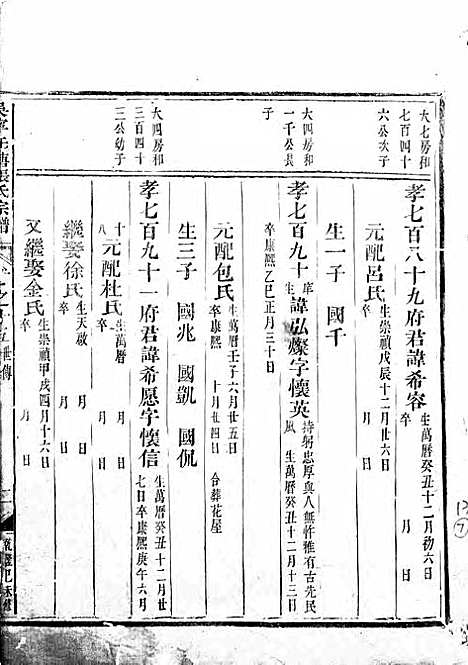 大七房和
七百四十
六公次子
孝七百八十九府君諱希容 生萬曆癸丑十二月初六日
卒 月 日
元配呂氏 生崇禎戊辰十二月廿六日
卒 月 日
生一子 國千
大四房和
一千公長
子
孝七百九十 庠 諱泓燦字懷英 持躬忠厚與人無忤雅有古先民
風 生萬曆癸丑十二月十三日
卒康熙乙巳正月三十日
元配包氏 生萬曆壬子六月廿五日
卒康熙 十月廿四日 合葬花屋
生三子 國兆 國凱 國侃
大四房和
三百四十
三公幼子
孝七百九十一府君諱希愿字懷信 生萬曆癸丑十二月十
七日卒康熙庚午六月
十八
元配杜氏 生萬曆 月 日
卒 月 日
繼娶徐氏 生天啟 月 日
卒 月 日
又繼娶金氏 生崇禎甲戌四月十六日
卒 月 日
張氏宗譜
世傳